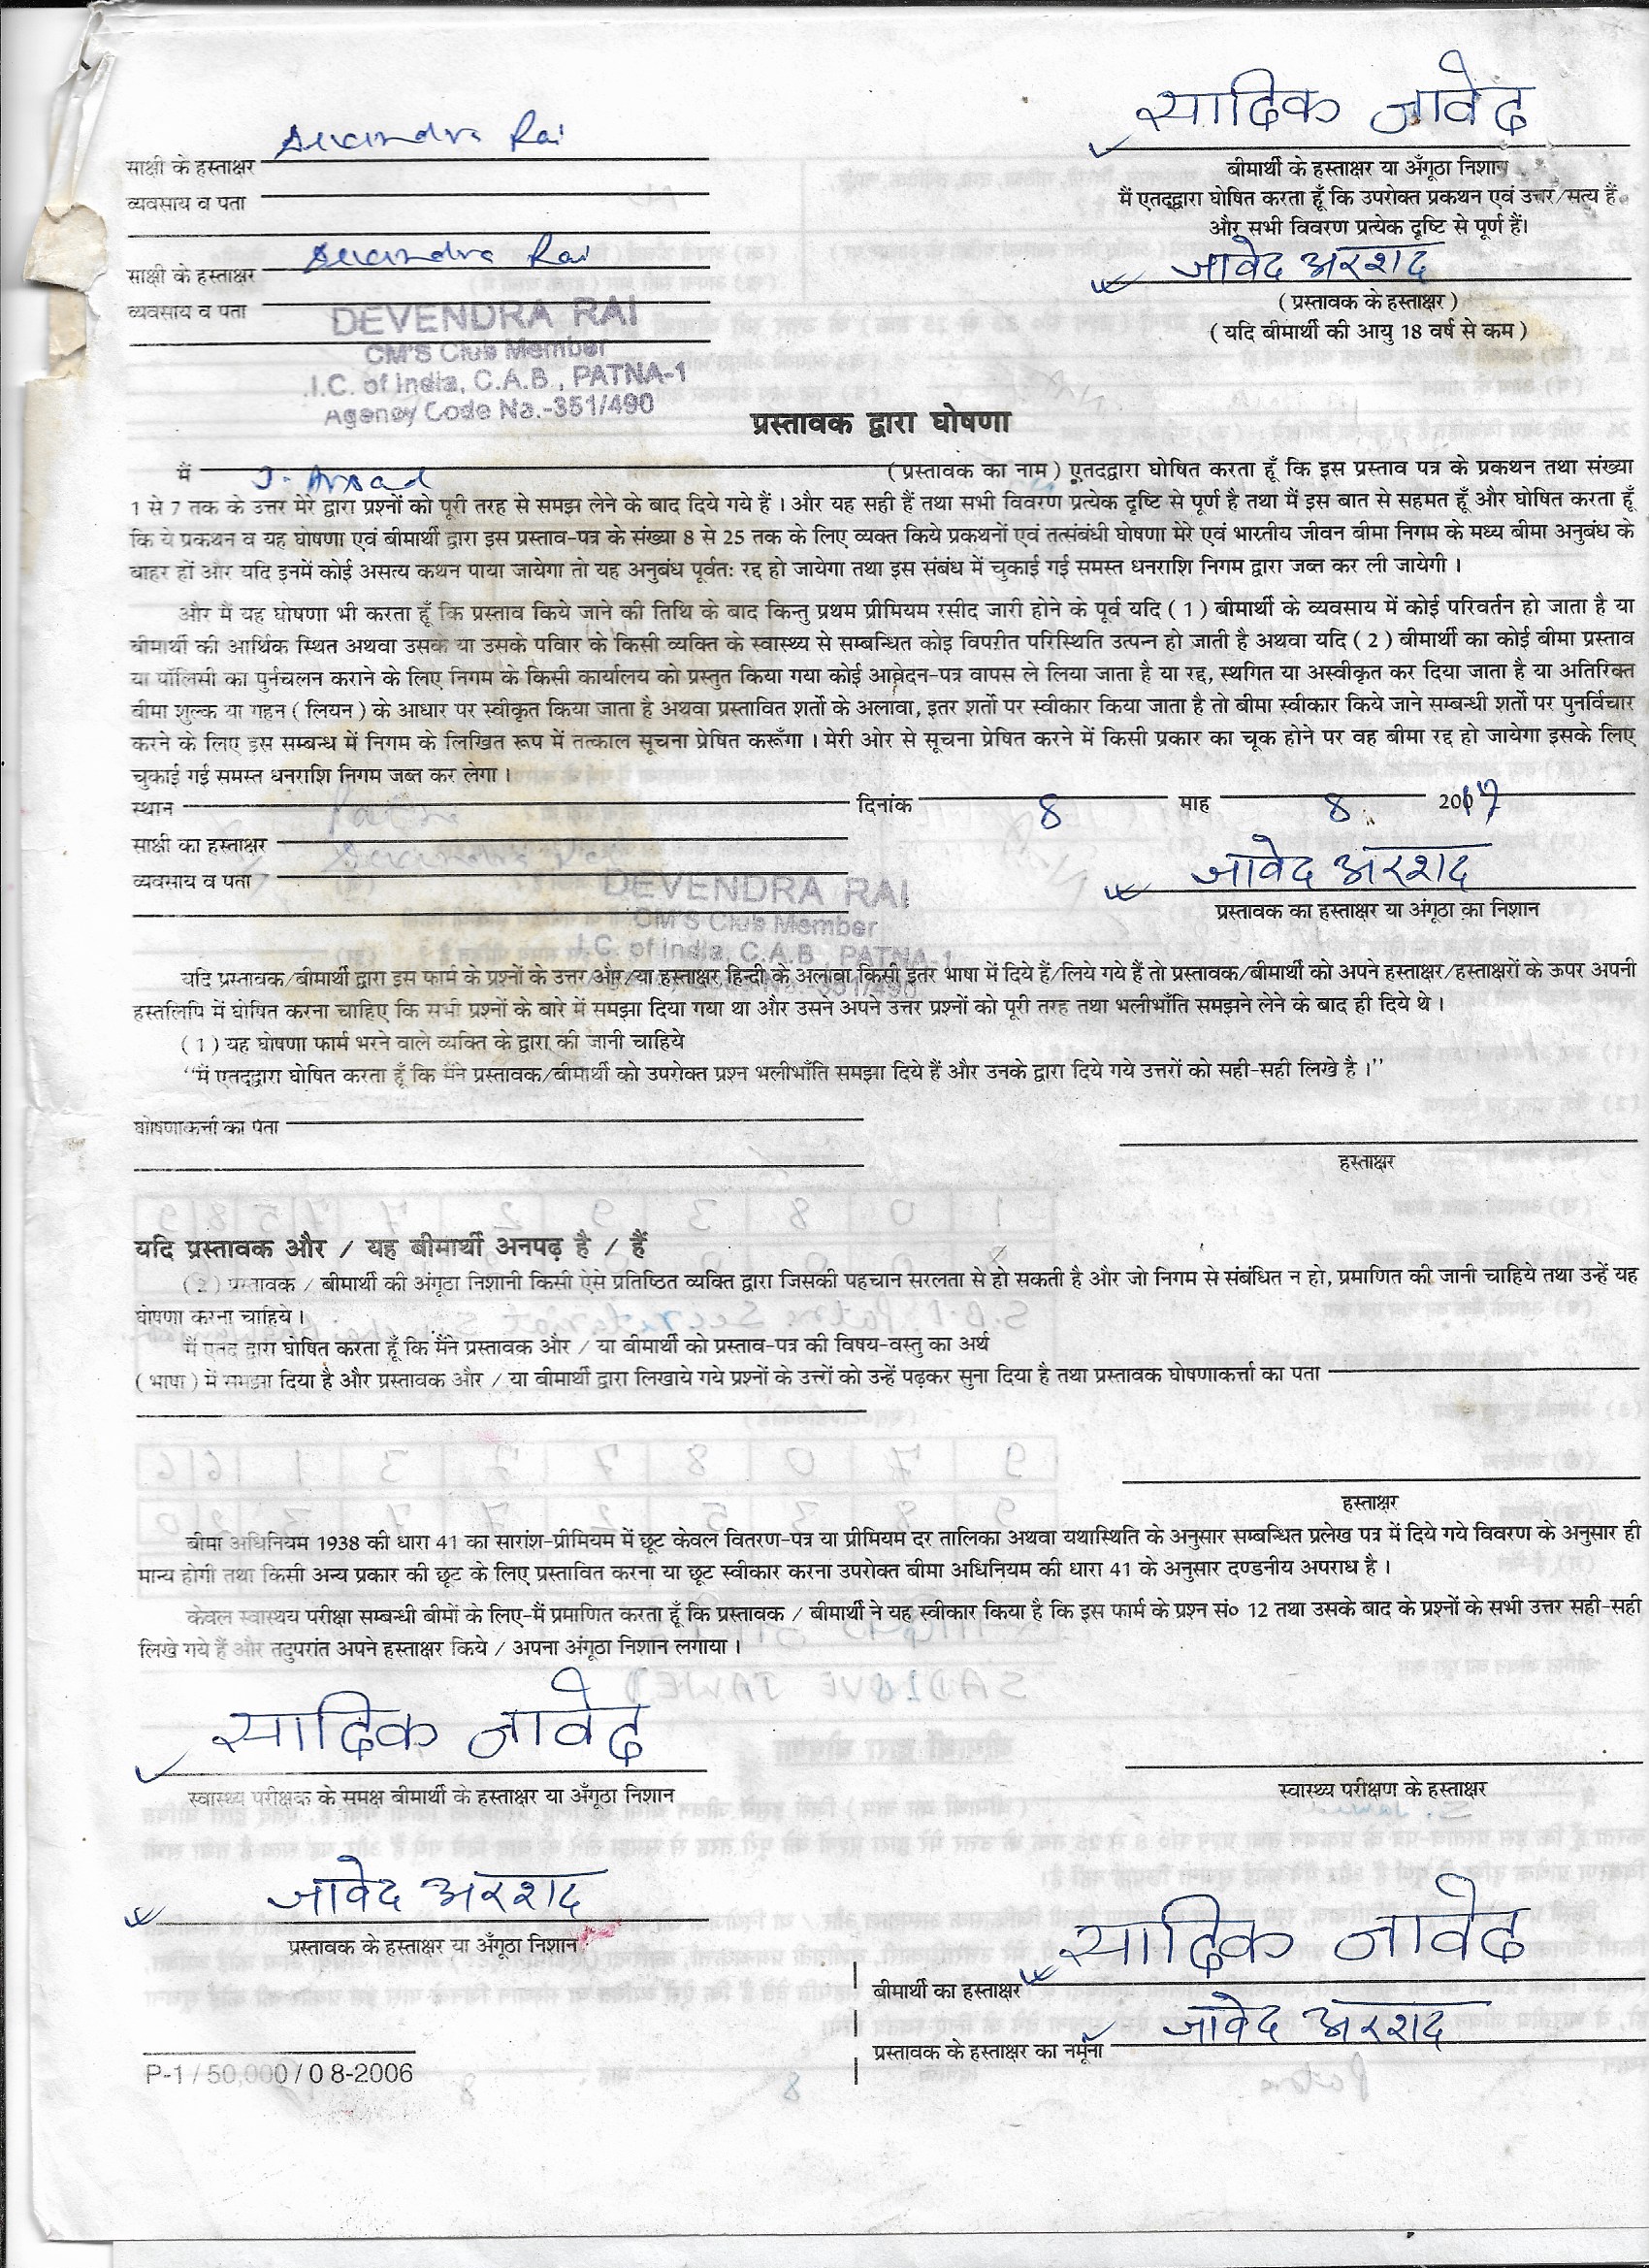 सादिक जावेद
Devendra Rai
साक्षी के हस्ताक्षर
बीमार्थी के हस्ताक्षर या अँगूठा निशान
व्यवसाय व पता
मैं एतद्द्वारा घोषित करता हूँ कि उपरोक्त प्रकथन एवं उत्तर/सत्य हैं
और सभी विवरण प्रत्येक दृष्टि से पूर्ण हैं।
Devendra Rai
साक्षी के हस्ताक्षर
जावेद अरशद
( प्रस्तावक के हस्ताक्षर )
व्यवसाय व पता
( यदि बीमार्थी की आयु 18 वर्ष से कम )
DEVENDRA RAI
CM'S Club Member
.I.C. of India, C.A.B., PATNA-1
Agency Code No.-351/490
प्रस्तावक द्वारा घोषणा
मैं J. Arsad ( प्रस्तावक का नाम ) एतदद्वारा घोषित करता हूँ कि इस प्रस्ताव पत्र के प्रकथन तथा संख्या
1 से 7 तक के उत्तर मेरे द्वारा प्रश्नों को पूरी तरह से समझ लेने के बाद दिये गये हैं। और यह सही हैं तथा सभी विवरण प्रत्येक दृष्टि से पूर्ण है तथा मैं इस बात से सहमत हूँ और घोषित करता हूँ
कि ये प्रकथन व यह घोषणा एवं बीमार्थी द्वारा इस प्रस्ताव-पत्र के संख्या 8 से 25 तक के लिए व्यक्त किये प्रकथनों एवं तत्संबंधी घोषणा मेरे एवं भारतीय जीवन बीमा निगम के मध्य बीमा अनुबंध के
बाहर हों और यदि इनमें कोई असत्य कथन पाया जायेगा तो यह अनुबंध पूर्वत: रद्द हो जायेगा तथा इस संबंध में चुकाई गई समस्त धनराशि निगम द्वारा जब्त कर ली जायेगी।
और मैं यह घोषणा भी करता हूँ कि प्रस्ताव किये जाने की तिथि के बाद किन्तु प्रथम प्रीमियम रसीद जारी होने के पूर्व यदि ( 1 ) बीमार्थी के व्यवसाय में कोई परिवर्तन हो जाता है या
बीमार्थी की आर्थिक स्थित अथवा उसके या उसके पविार के किसी व्यक्ति के स्वास्थ्य से सम्बन्धित कोइ विपरीत परिस्थिति उत्पन्न हो जाती है अथवा यदि ( 2 ) बीमार्थी का कोई बीमा प्रस्ताव
या पॉलिसी का पुर्नचलन कराने के लिए निगम के किसी कार्यालय को प्रस्तुत किया गया कोई आवेदन-पत्र वापस ले लिया जाता है या रद्द, स्थगित या अस्वीकृत कर दिया जाता है या अतिरिक्त
बीमा शुल्क या गहन ( लियन ) के आधार पर स्वीकृत किया जाता है अथवा प्रस्तावित शर्तो के अलावा, इतर शर्तो पर स्वीकार किया जाता है तो बीमा स्वीकार किये जाने सम्बन्धी शर्तो पर पुनर्विचार
करने के लिए इस सम्बन्ध में निगम के लिखित रूप में तत्काल सूचना प्रेषित करूँगा। मेरी ओर से सूचना प्रेषित करने में किसी प्रकार का चूक होने पर वह बीमा रद्द हो जायेगा इसके लिए
चुकाई गई समस्त धनराशि निगम जब्त कर लेगा।
स्थान Patna दिनांक 8 माह 8 2017
साक्षी का हस्ताक्षर Devendra Rai
जावेद अरशद
व्यवसाय व पता
प्रस्तावक का हस्ताक्षर या अंगूठा का निशान
DEVENDRA RAI
CM'S Club Member
I.C. of India, C.A.B., PATNA-1
351/490
यदि प्रस्तावक/बीमार्थी द्वारा इस फार्म के प्रश्नों के उत्तर और/या हस्ताक्षर हिन्दी के अलावा किसी इतर भाषा में दिये हैं/लिये गये हैं तो प्रस्तावक/बीमार्थी को अपने हस्ताक्षर/हस्ताक्षरों के ऊपर अपनी
हस्तलिपि में घोषित करना चाहिए कि सभी प्रश्नों के बारे में समझा दिया गया था और उसने अपने उत्तर प्रश्नों को पूरी तरह तथा भलीभाँति समझने लेने के बाद ही दिये थे।
( 1 ) यह घोषणा फार्म भरने वाले व्यक्ति के द्वारा की जानी चाहिये
''मैं एतद्द्वारा घोषित करता हूँ कि मैंने प्रस्तावक/बीमार्थी को उपरोक्त प्रश्न भलीभाँति समझा दिये हैं और उनके द्वारा दिये गये उत्तरों को सही-सही लिखे है।''
घोषणाकर्त्ता का पता
हस्ताक्षर
यदि प्रस्तावक और / यह बीमार्थी अनपढ़ है / हैं
( 2 ) प्रस्तावक / बीमार्थी की अंगूठा निशानी किसी ऐसे प्रतिष्ठित व्यक्ति द्वारा जिसकी पहचान सरलता से हो सकती है और जो निगम से संबंधित न हो, प्रमाणित की जानी चाहिये तथा उन्हें यह
घोषणा करना चाहिये।
मैं एतद द्वारा घोषित करता हूँ कि मैंने प्रस्तावक और / या बीमार्थी को प्रस्ताव-पत्र की विषय-वस्तु का अर्थ
( भाषा ) में समझा दिया है और प्रस्तावक और / या बीमार्थी द्वारा लिखाये गये प्रश्नों के उत्तरों को उन्हें पढ़कर सुना दिया है तथा प्रस्तावक घोषणाकर्त्ता का पता
हस्ताक्षर
बीमा अधिनियम 1938 की धारा 41 का सारांश-प्रीमियम में छूट केवल वितरण-पत्र या प्रीमियम दर तालिका अथवा यथास्थिति के अनुसार सम्बन्धित प्रलेख पत्र में दिये गये विवरण के अनुसार ही
मान्य होगी तथा किसी अन्य प्रकार की छूट के लिए प्रस्तावित करना या छूट स्वीकार करना उपरोक्त बीमा अधिनियम की धारा 41 के अनुसार दण्डनीय अपराध है।
केवल स्वास्थय परीक्षा सम्बन्धी बीमों के लिए-मैं प्रमाणित करता हूँ कि प्रस्तावक / बीमार्थी ने यह स्वीकार किया है कि इस फार्म के प्रश्न सं० 12 तथा उसके बाद के प्रश्नों के सभी उत्तर सही-सही
लिखे गये हैं और तदुपरांत अपने हस्ताक्षर किये / अपना अंगूठा निशान लगाया।
सादिक जावेद
स्वास्थ्य परीक्षक के समक्ष बीमार्थी के हस्ताक्षर या अँगूठा निशान
स्वास्थ्य परीक्षण के हस्ताक्षर
जावेद अरशद
प्रस्तावक के हस्ताक्षर या अँगूठा निशान
सादिक जावेद
बीमार्थी का हस्ताक्षर
जावेद अरशद
प्रस्तावक के हस्ताक्षर का नमूना
P-1 / 50,000 / 0 8-2006